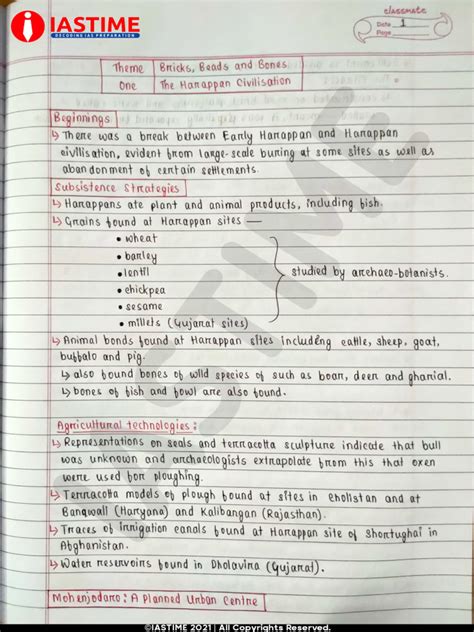 IASTIME
DECODING IAS PREPARATION
classmate
Date 1
Page
Theme One
Bricks, Beads and Bones
The Harappan Civilisation
Beginnings
↳ There was a break between Early Harappan and Harappan
civilisation, evident from large-scale buring at some sites as well as
abandonment of certain settlements.
Subsistence Strategies
↳ Harappans ate plant and animal products, including fish.
↳ Grains found at Harappan sites —
• wheat
• barley
• lentil
• chickpea
• sesame
• millets (Gujarat sites)
studied by archaeo-botanists.
↳ Animal bonds found at Harappan sites including cattle, sheep, goat,
buffalo and pig.
↳ also found bones of wild species of such as boar, deer and gharial.
↳ bones of fish and fowl are also found.
Agricultural technologies:
↳ Representations on seals and terracotta sculpture indicate that bull
was unknown and archaeologists extrapolate from this that oxen
were used for ploughing.
↳ Terracotta models of plough found at sites in Cholistan and at
Banawali (Haryana) and Kalibangan (Rajasthan).
↳ Traces of irrigation canals found at Harappan site of Shortughai in
Afghanistan.
↳ Water reservoirs found in Dholavira (Gujarat).
Mohenjodaro: A Planned Urban Centre
IASTIME
©IASTIME 2021 | All Copyrights Reserved.